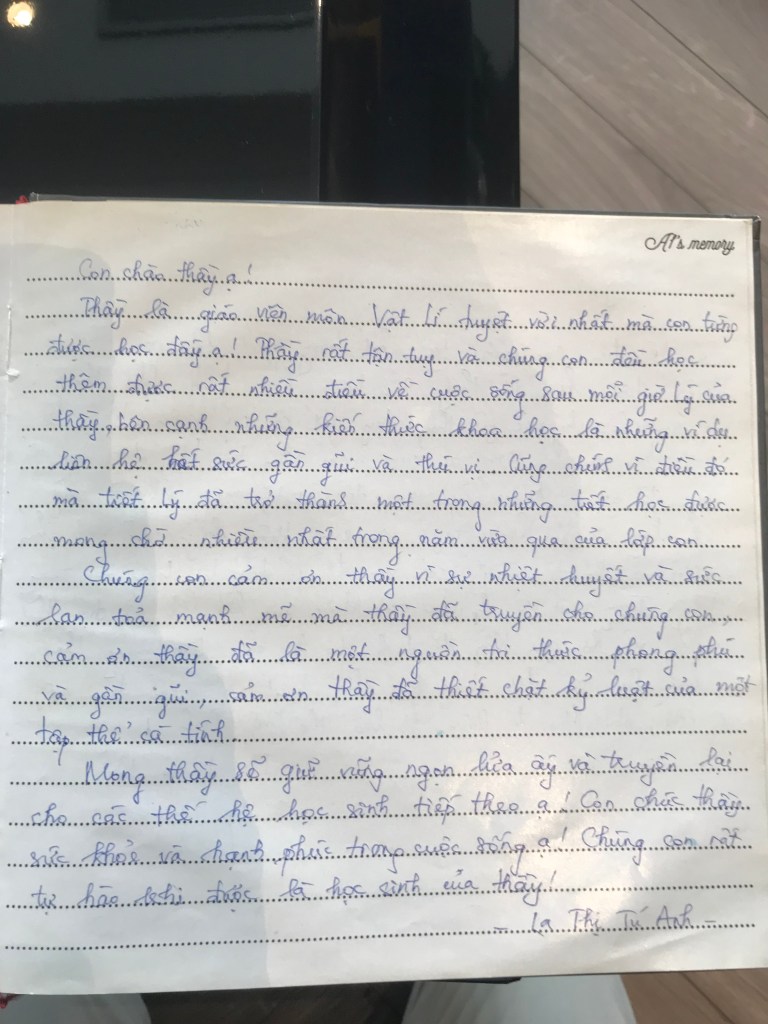 A1's memory
Con chào thầy ạ!
Thầy là giáo viên môn Vật Lí tuyệt vời nhất mà con từng
được học đấy ạ! Thầy rất tận tụy và chúng con đều học
thêm được rất nhiều điều về cuộc sống sau mỗi giờ Lý của
thầy, bên cạnh những kiến thức khoa học là những ví dụ
liên hệ hết sức gần gũi và thú vị. Cũng chính vì điều đó
mà tiết Lý đã trở thành một trong những tiết học được
mong chờ nhiều nhất trong năm vừa qua của lớp con.
Chúng con cảm ơn thầy vì sự nhiệt huyết và sức
lan toả mạnh mẽ mà thầy đã truyền cho chúng con,
cảm ơn thầy đã là một nguồn tri thức phong phú
và gần gũi, cảm ơn thầy đã thiết chặt kỷ luật của một
tập thể cá tính.
Mong thầy sẽ giữ vững ngọn lửa ấy và truyền lại
cho các thế hệ học sinh tiếp theo ạ! Con chúc thầy
sức khỏe và hạnh phúc trong cuộc sống ạ! Chúng con rất
tự hào khi được là học sinh của thầy!
- Lạ Thị Tú Anh -